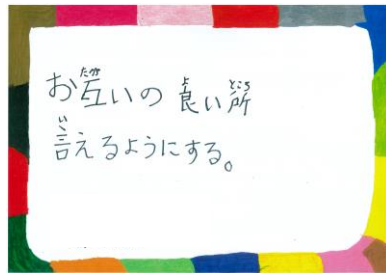 お互いの良い所
言えるようにする。